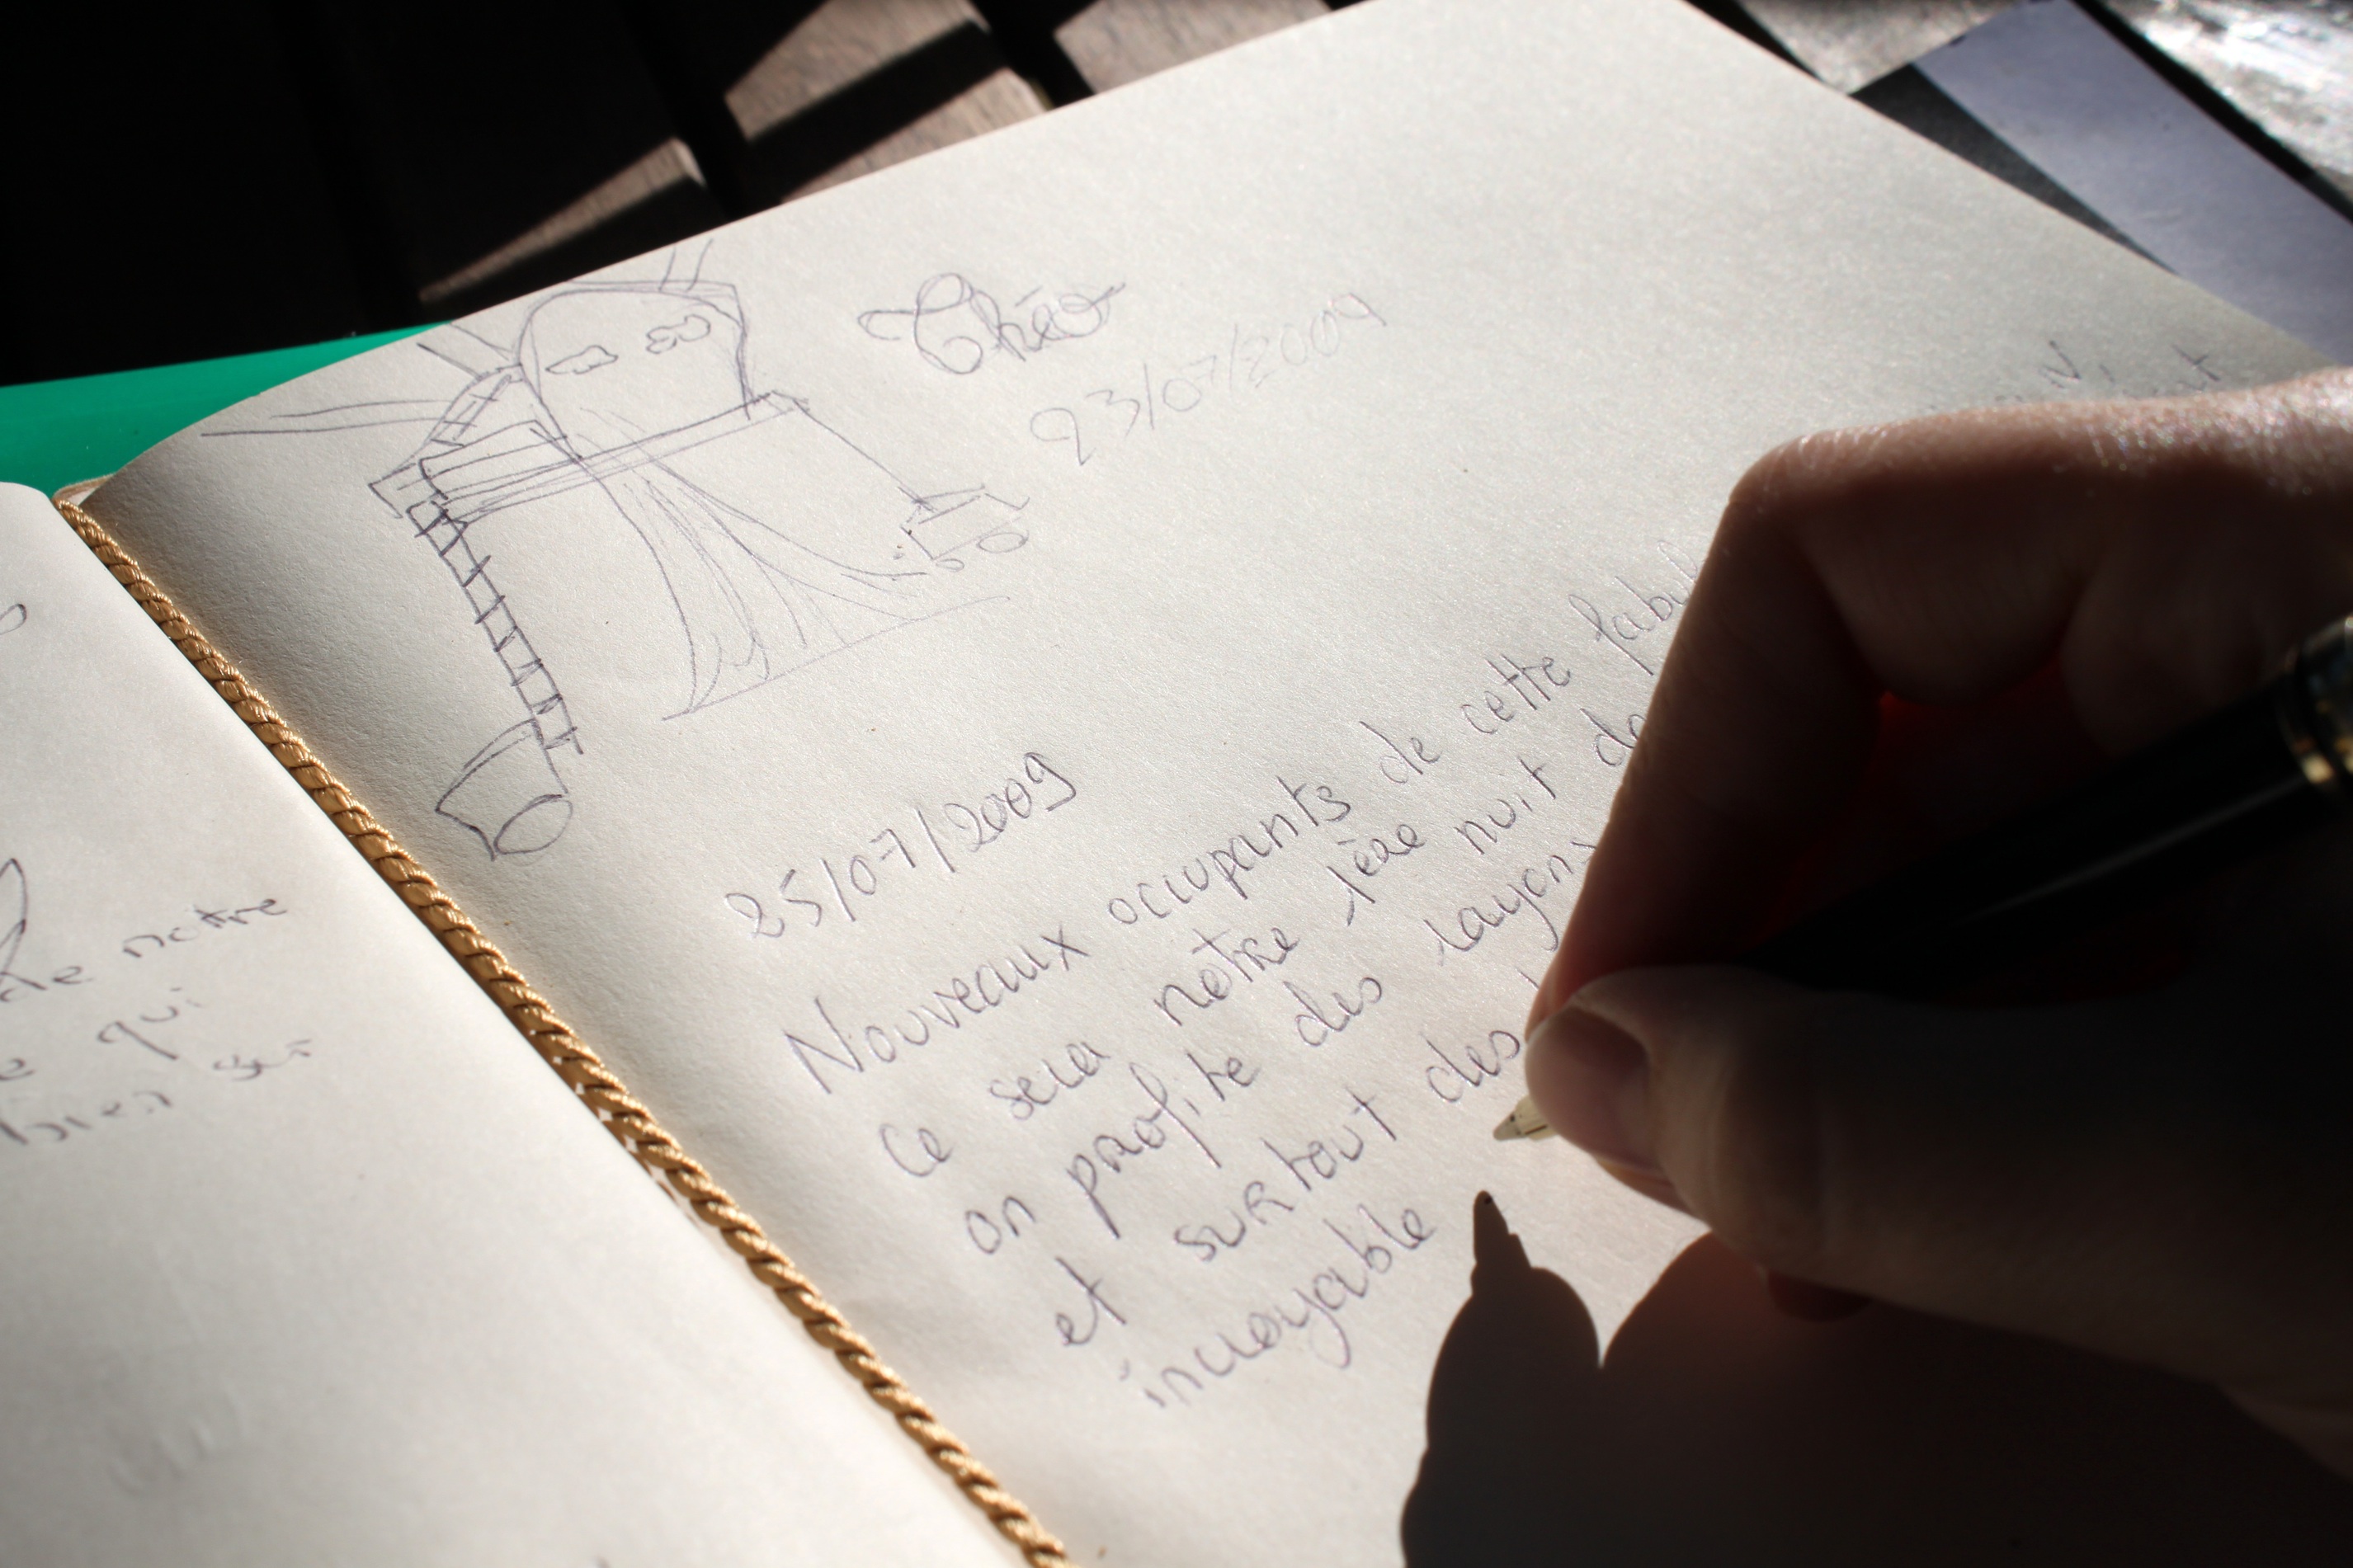 de notre
qui
bien
Théo
23/07/2009
25/07/2009
Nouveaux occupants de cette
Ce sera notre 1ère nuit
on profite des rayons
et surtout des
incroyable